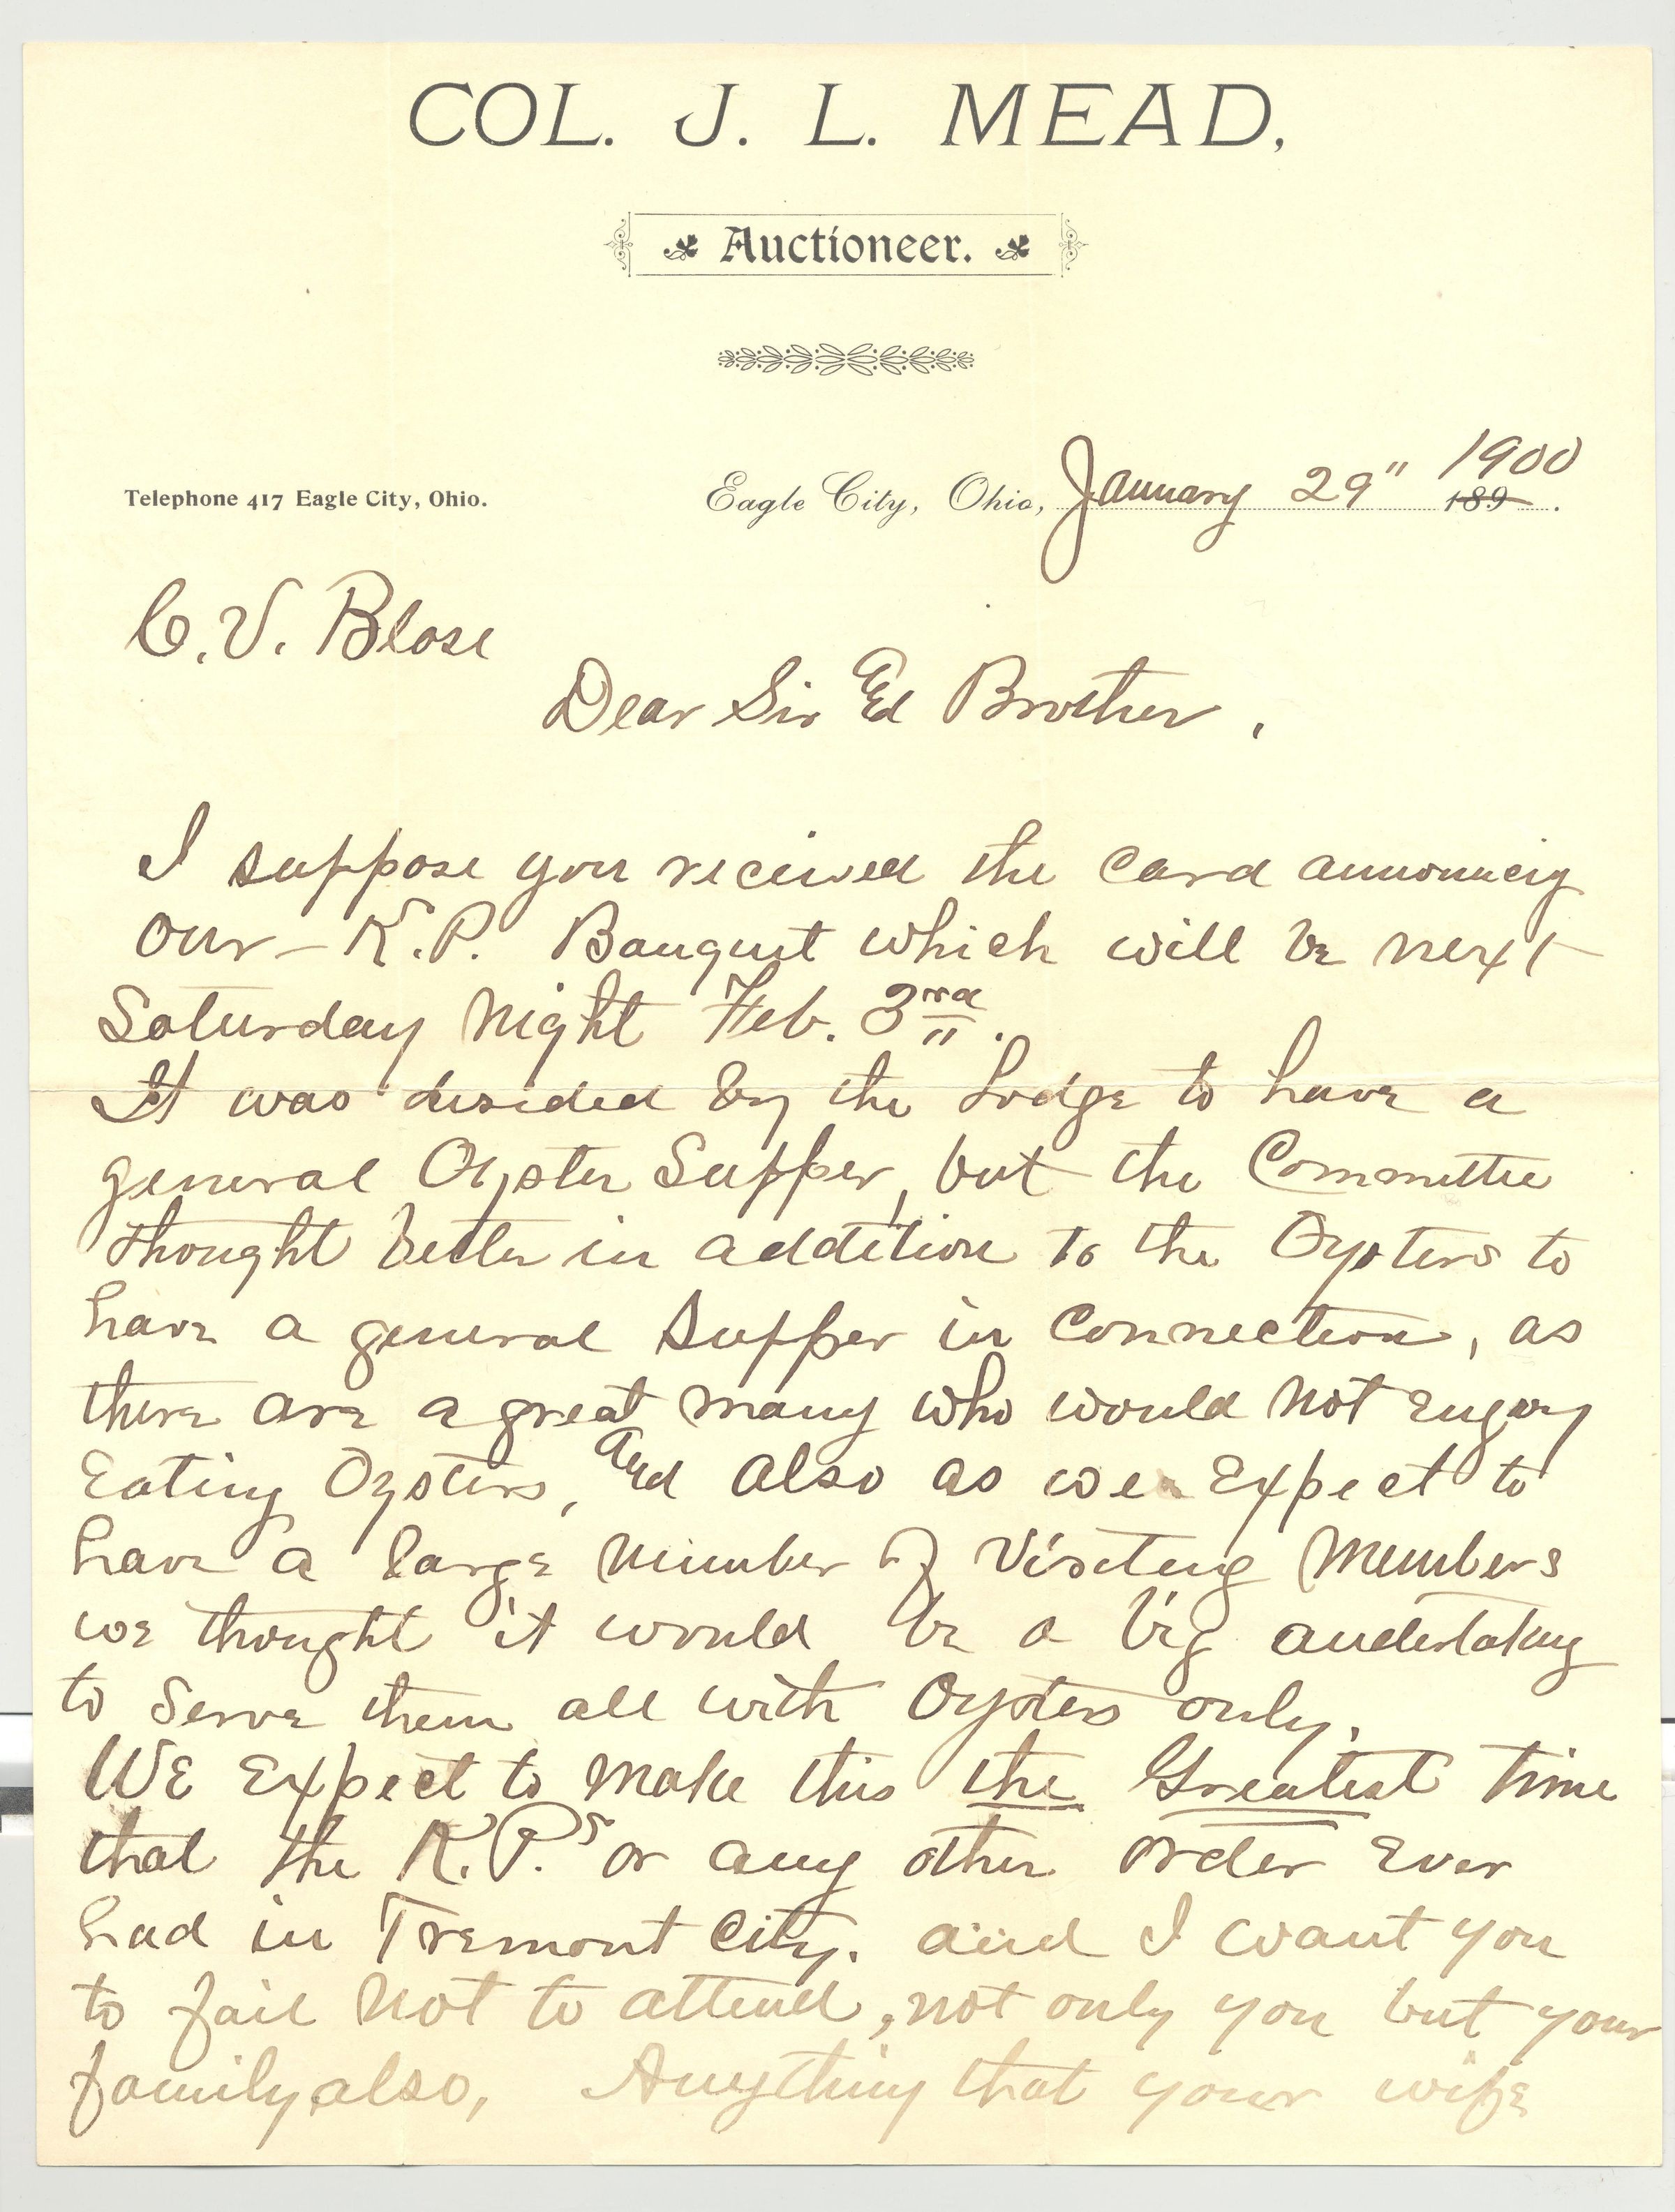 COL. J. L. MEAD,
Auctioneer.
Telephone 417 Eagle City, Ohio.
Eagle City, Ohio, January 29" 1900
189 .
C. V. Blose
Dear Sir and Brother,
I suppose you recieved the card announcing
our K.P. Banquet which will be next
Saturday Night Feb. 3rd.
It was desided by the Lodge to have a
general Oyster Supper, but the Committee
thought better in addition to the Oysters to
have a general Supper in Connection, as
there are a great many who would not enjoy
Eating Oysters, and also as we Expect to
have a large number of Visiting Members
we thought it would be a big undertaking
to Serve them all with Oysters only.
We Expect to make this the Greatest time
that the K.P.s or any other order Ever
had in Tremont City. and I want you
to fail not to attend, not only you but your
family also, Anything that your wife